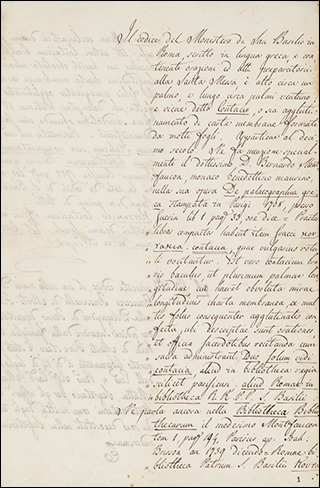 Il codice del Monistero di San Basilio in
Roma, scritto in lingua greca, e con
tenente orazioni ed atti preparatorii
alla Santa Messa, è alto circa un
palmo, e lungo circa palmi ventuno
e viene detto Contacio, o sia aggluti
namento di carte membrane formate
da molti fogli. Appartiene al deci
mo secolo. Ne fa menzione special
mente il dottissimo D. Bernardo Mont
faucon monaco benedettino maurino,
nella sua opera De palaeographia gre
ca stampata in Parigi 1708, presso
Guerin lib 1 pag 33 ove dice = Basilii
libris computur habent item Graeci κον
τακια contacia, quae vulgarius rotu
li vocitantur. Est vero contacium bre
vis baculus ut plurimum palmar lon
gitudine cui haeret obvoluta mirae
longitudinis charta membranea, ex mul
tis foliis consequenter agglutinatis con
fecta, ubi descriptae sunt orationes
et officia sacerdotibus recitanda cum
sacra administrant. Duo solum vidi
contacia, aliud in bibliotheca regia
scilicet parisiensi, aliud Romae in
bibliotheca R R P P S. Basilii
Ne parla ancora nella Bibliotheca Biblio
thecarum il medesimo Montfaucon
tom 1, pag 194, Parisiis ap.
Briasson an 1739 dicendo = Romae bi
bliotheca Patrum S. Basilii
1